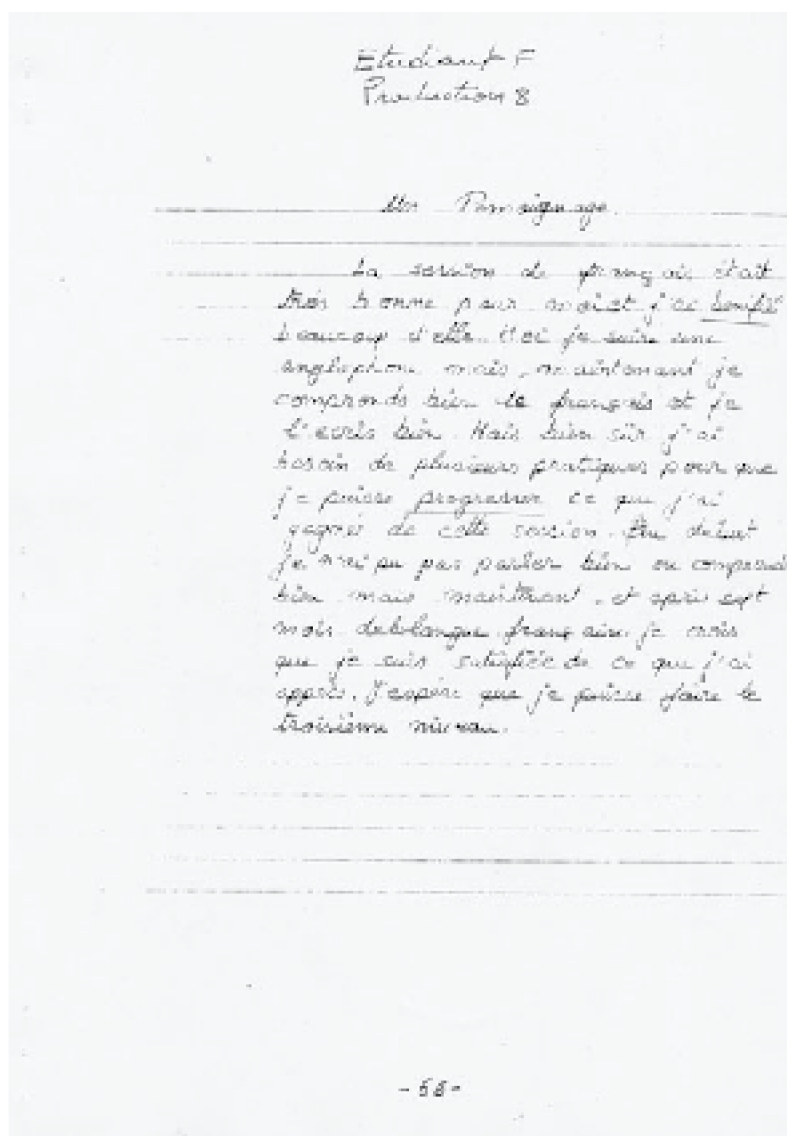 Etudiant F
Production 8
Mon Témoignage
La session de français était
très bonne pour moi et j'ai
beaucoup d'elle. Moi je suis une
anglophone mais, maintenant je
comprends bien le français et je
l'écris bien. Mais bien sûr j'ai
besoin de plusieurs pratiques pour que
je puisse progresser ce que j'ai
gagné de cette session. Au début
je n'ai pu pas parler bien ou comprend
bien mais maintenant, et après sept
mois de langue française je crois
que je suis satisfiée de ce que j'ai
appris. J'espère que je puisse faire le
troisième niveau.